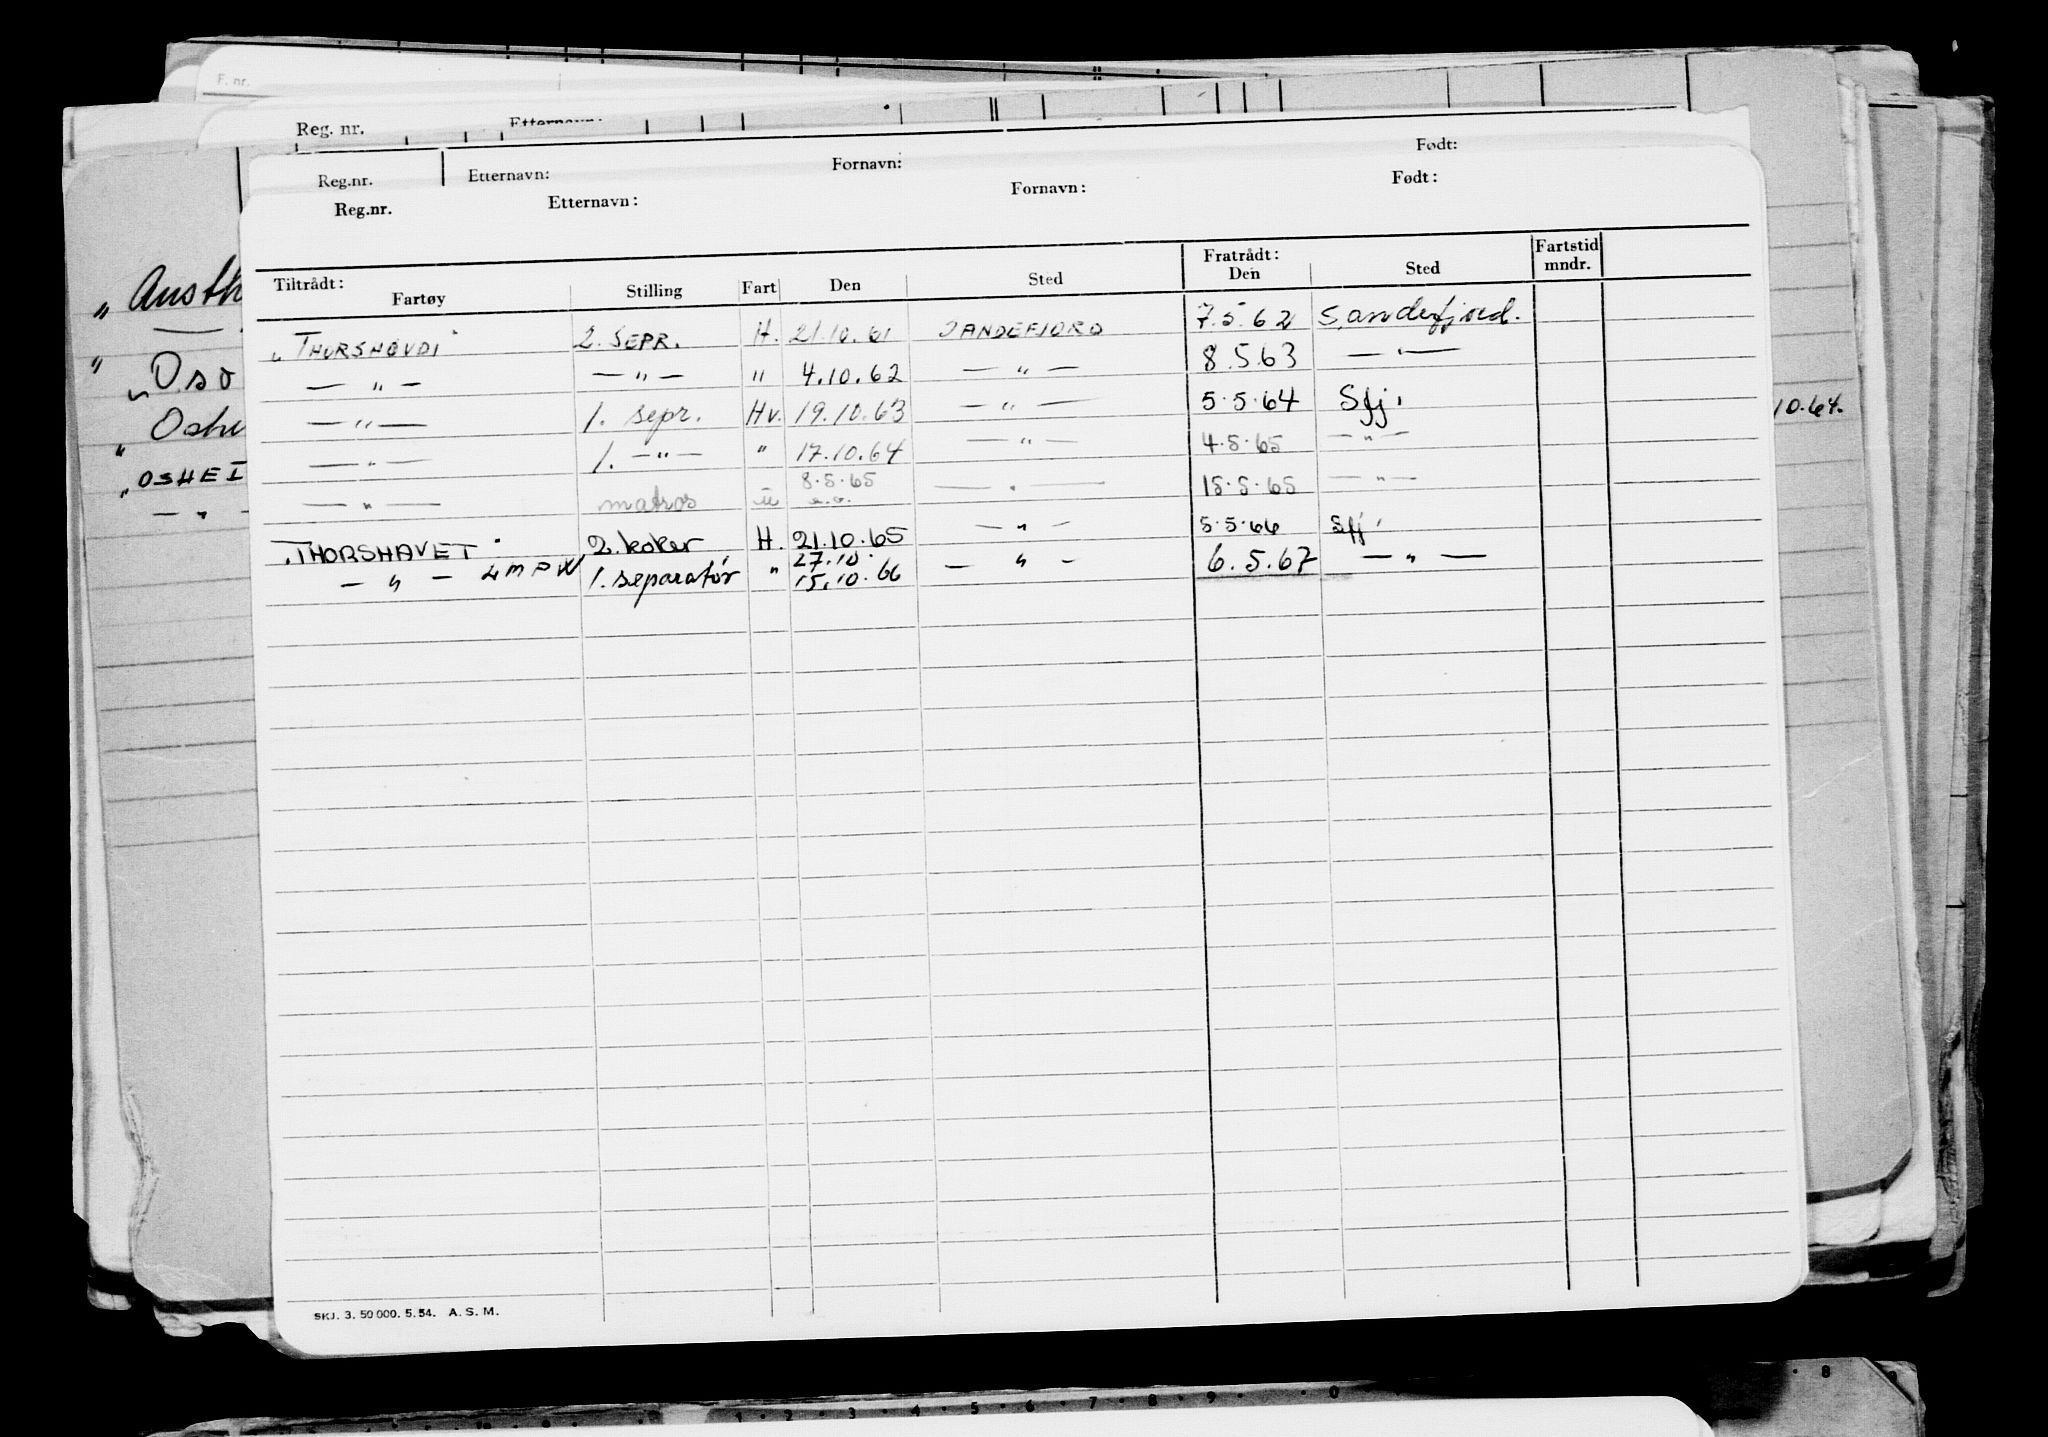 F. nr.
Reg. nr. Etternavn:
Reg.nr. Etternavn: Fornavn: Født:
Reg.nr. Etternavn: Fornavn: Født:
Tiltrådt: Fartøy Stilling Fart Den Sted Fratrådt: Den Sted Fartstid mndr.
"THORSHØVDI" 2. SEPR. H. 21.10.61 SANDEFJORD 7.5.62 Sandefjord.
— " — — " — " 4.10.62 — " — 8.5.63 — " —
— " — 1. sepr. Hv. 19.10.63 — " — 5.5.64 Sfj.
— " — 1. — " — " 17.10.64 — " — 4.5.65 — " —
— " — matros u 8.5.65 — " — 15.5.65 — " —
"THORSHAVET" 2. koker H. 21.10.65 — " — 5.5.66 Sfj.
— " — LMPW 1. separatør " 27.10. 15.10.66 — " — 6.5.67 — " —
" Austh
" Oso
" Oshe
"OSHEI
— " —
10.64.
SKJ. 3. 50 000. 5. 54. A. S. M.
1 2 3 4 5 6 7 8 9 0
8